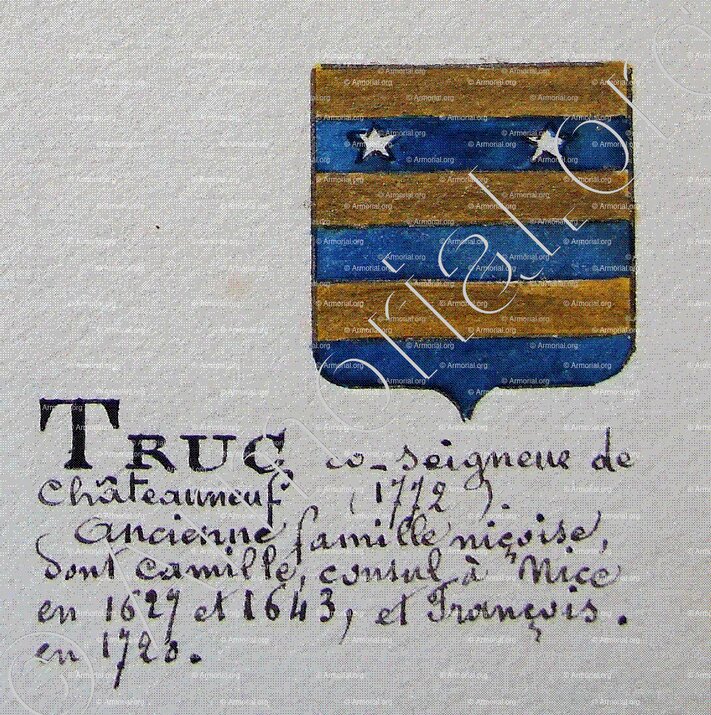 TRUC, co-seigneur de
Châteauneuf (1772).
Ancienne famille niçoise,
dont Camille, consul à Nice
en 1627 et 1643, et François.
en 1728.
© Armorial.org